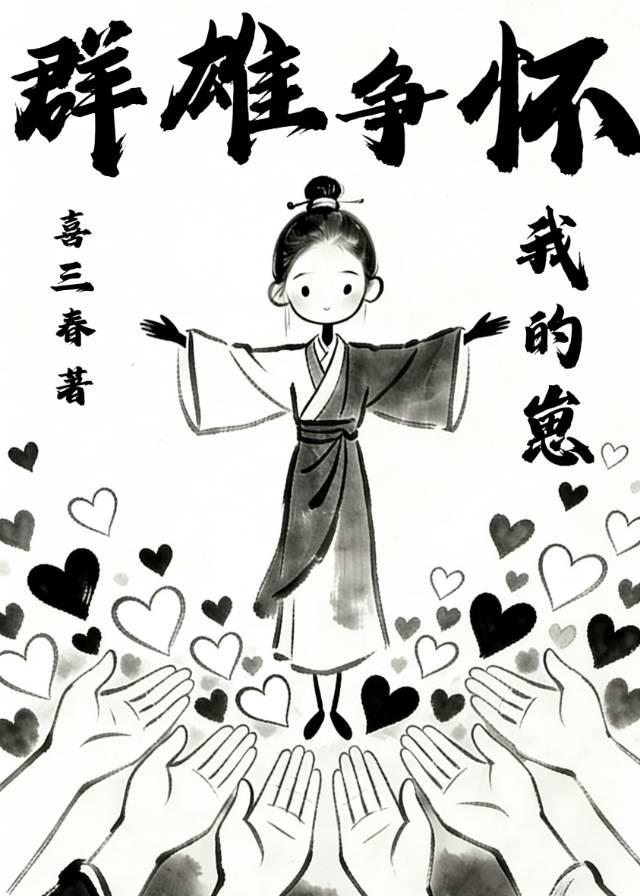 群雄争怀
我的崽
喜三春著